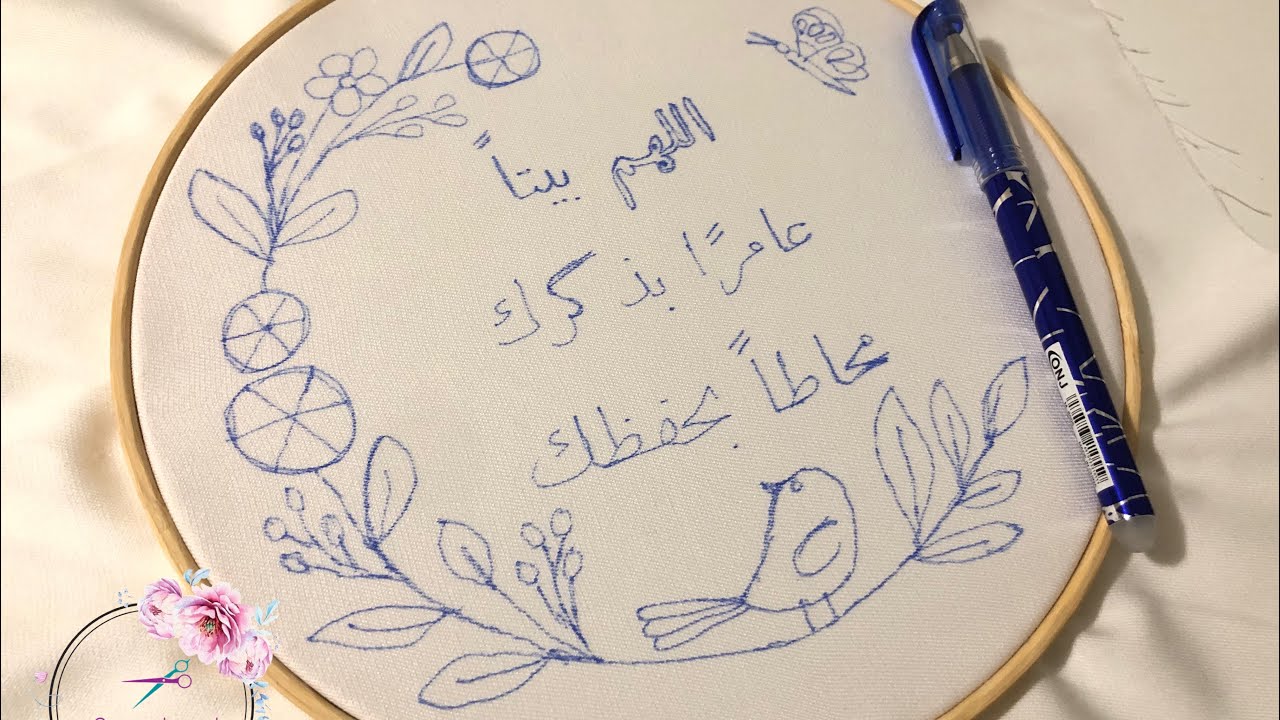 اللهم بيتاً
عامرًا بذكرك
محاطاً بحفظك